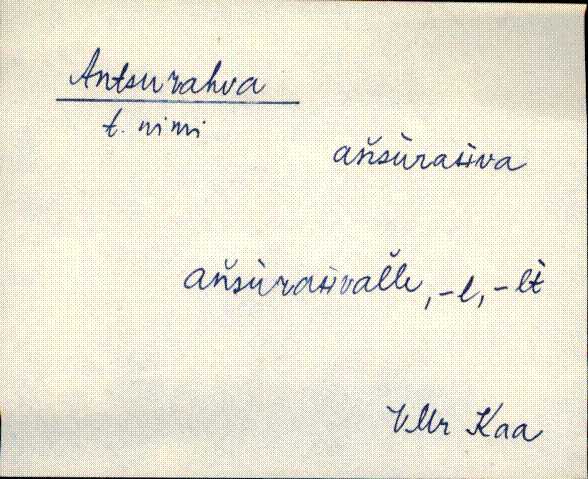 Antsurahva
t. nimi
añsùrasiva
añsùrasivalle, -l, -lt
VMr Kaa